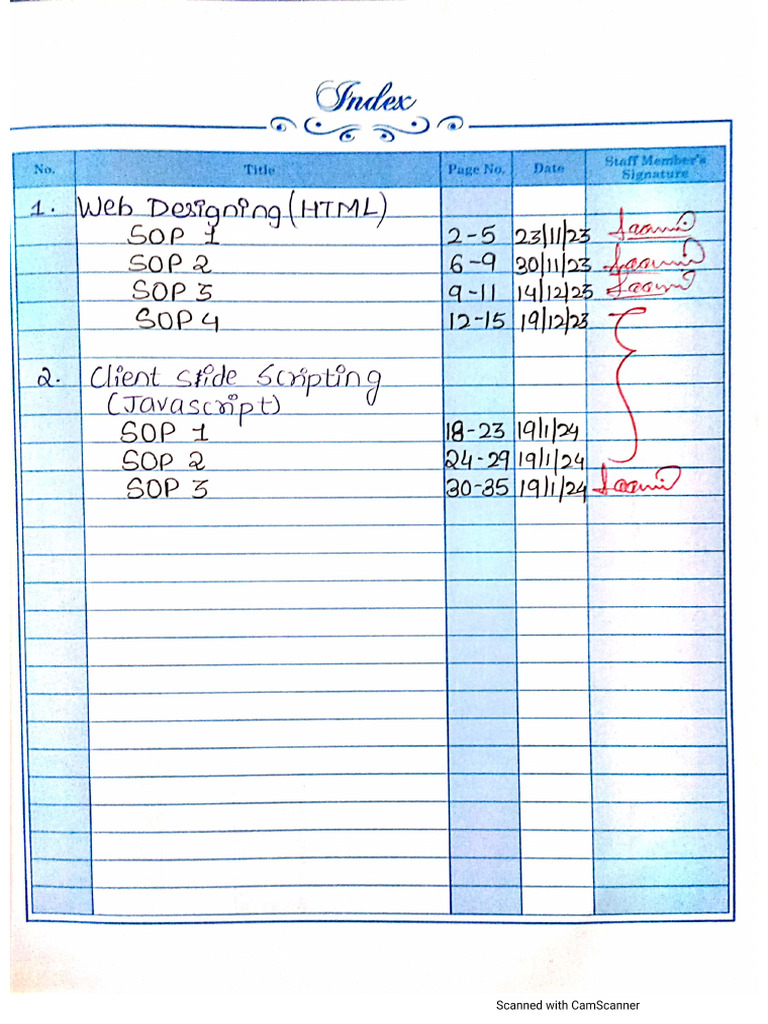 Index
No. Title Page No. Date Staff Member's Signature
1. Web Designing (HTML)
SOP 1 2-5 23/11/23
SOP 2 6-9 30/11/23
SOP 3 9-11 14/12/23
SOP 4 12-15 19/12/23
2. Client Side Scripting
(Javascript)
SOP 1 18-23 19/1/24
SOP 2 24-29 19/1/24
SOP 3 30-35 19/1/24
Scanned with CamScanner